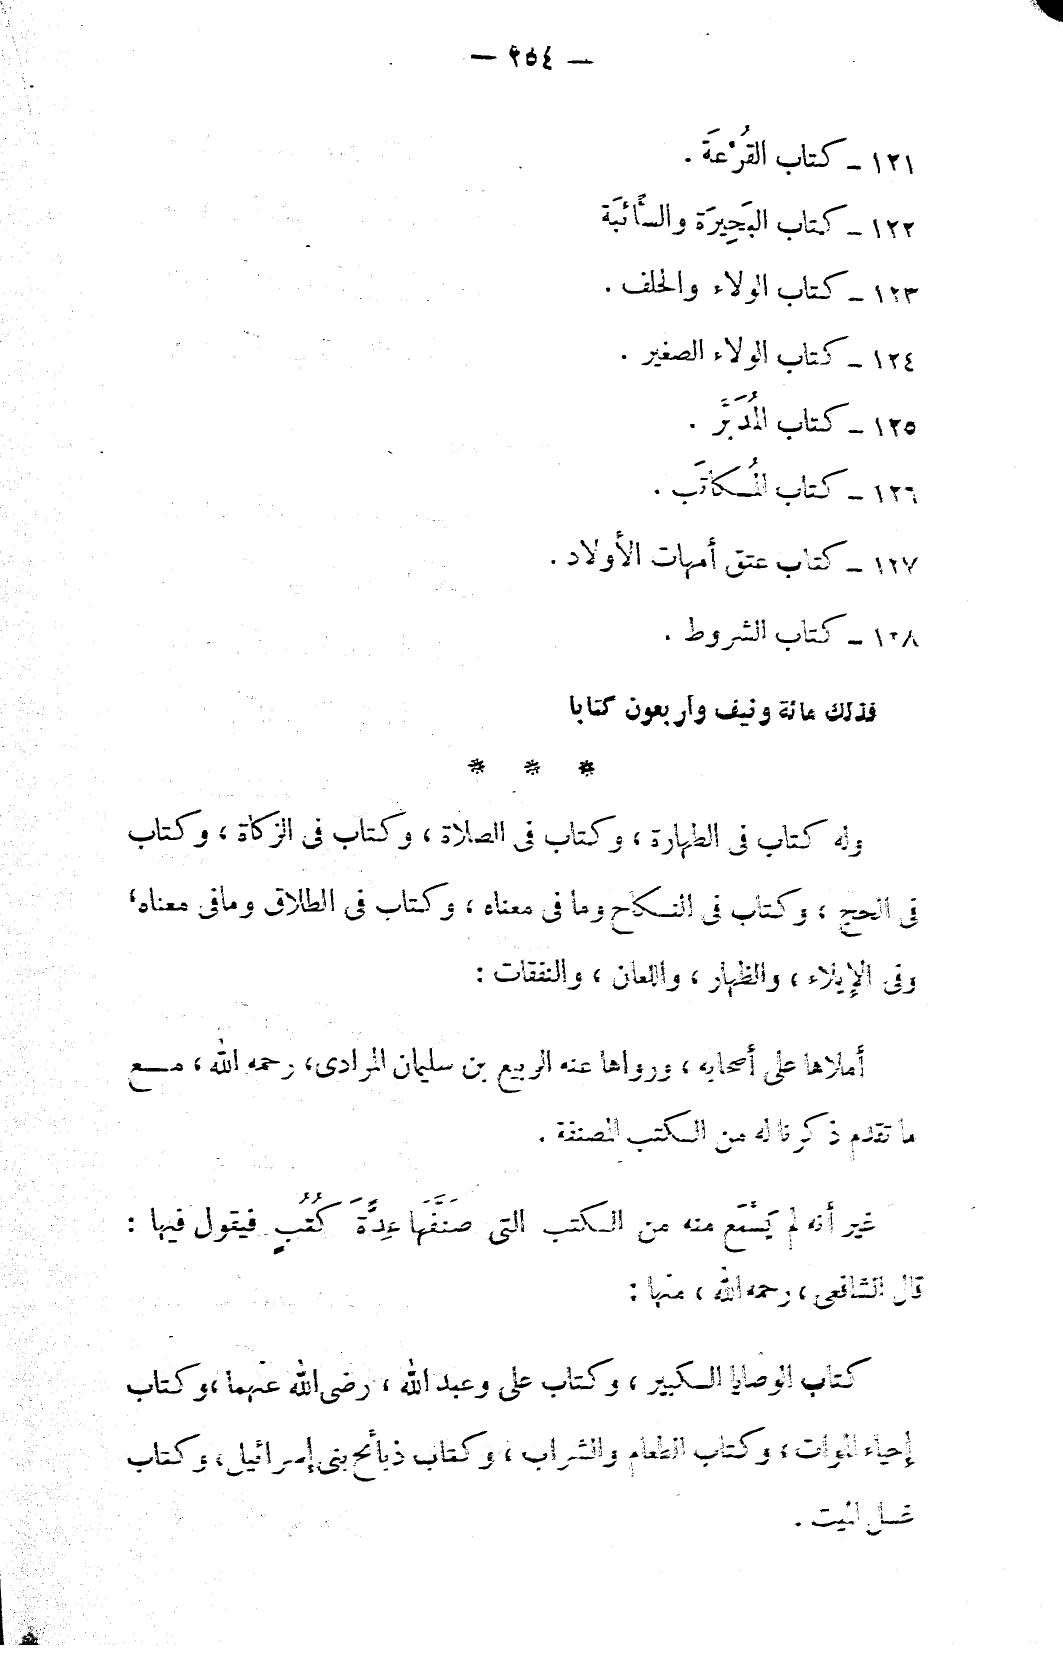 — ٢٥٤ —
١٢١ ـ كتاب القُرْعَة .
١٢٢ ـ كتاب البَحِيرَة والسَّائبَة
١٢٣ ـ كتاب الولاء والحلف .
١٢٤ ـ كتاب الولاء الصغير .
١٢٥ ـ كتاب المُدَبَّر .
١٢٦ ـ كتاب المُكاتَب .
١٢٧ ـ كتاب عتق أمهات الأولاد .
١٢٨ ـ كتاب الشروط .
فذلك مائة ونيف وأربعون كتابا
* * *
وله كتاب فى الطهارة ، وكتاب فى الصلاة ، وكتاب فى الزكاة ، وكتاب
فى الحج ، وكتاب فى النكاح وما فى معناه ، وكتاب فى الطلاق ومافى معناه ،
وفى الإيلاء ، والظهار ، واللعان ، والنفقات :
أملاها على أصحابه ، ورواها عنه الربيع بن سليمان المرادى، رحمه الله ، مع
ما تقدم ذكرنا له من الكتب المصنفة .
غير أنه لم يَسْمَع منه من الكتب التى صَنَّفَها عِدَّةَ كُتُبٍ فيقول فيها :
قال الشافعى ، رحمه الله ، منها :
كتاب الوصايا الكبير ، وكتاب على وعبد الله ، رضى الله عنهما ،وكتاب
إحياء الموات ، وكتاب الطعام والشراب ، وكتاب ذبائح بنى إسرائيل ، وكتاب
غسل الميت .